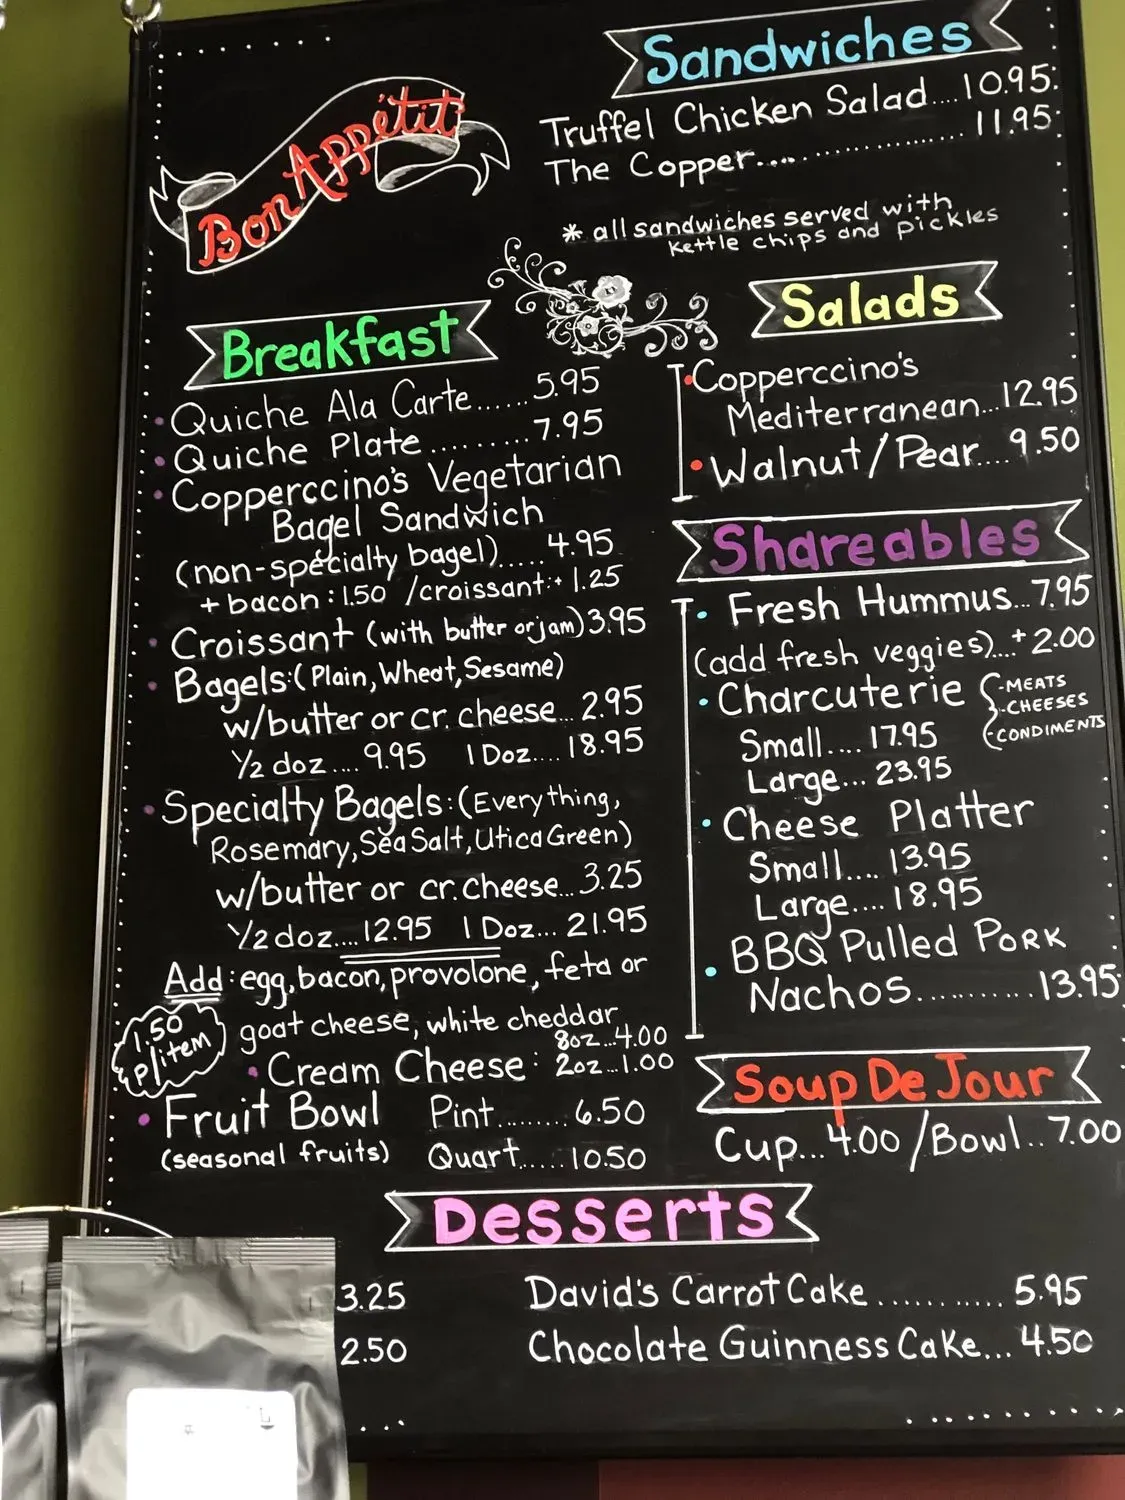 Bon Appétit
Sandwiches
Truffel Chicken Salad....10.95
The Copper.................. 11.95
* all sandwiches served with
kettle chips and pickles
Breakfast
Quiche Ala Carte......5.95
Quiche Plate..........7.95
Copperccino's Vegetarian
Bagel Sandwich
(non-specialty bagel)..... 4.95
+ bacon: 1.50 /croissant:+ 1.25
Croissant (with butter or jam) 3.95
Bagels:(Plain, Wheat, Sesame)
w/butter or cr. cheese... 2.95
1/2 doz.... 9.95 1 Doz.... 18.95
Specialty Bagels:(Everything,
Rosemary, Sea Salt, Utica Green)
w/butter or cr. cheese... 3.25
1/2 doz.... 12.95 1 Doz... 21.95
Add: egg, bacon, provolone, feta or
goat cheese, white cheddar
1.50
p/item
8oz...4.00
Cream Cheese: 2oz...1.00
Fruit Bowl Pint.........6.50
(seasonal fruits) Quart......10.50
Salads
Copperccino's
Mediterranean...12.95
Walnut/Pear....9.50
Shareables
Fresh Hummus...7.95
(add fresh veggies)....+2.00
Charcuterie
-MEATS
-CHEESES
-CONDIMENTS
Small.... 17.95
Large... 23.95
Cheese Platter
Small.... 13.95
Large.... 18.95
BBQ Pulled Pork
Nachos............13.95
Soup De Jour
Cup...4.00 /Bowl..7.00
Desserts
3.25
2.50
David's Carrot Cake............ 5.95
Chocolate Guinness Cake... 4.50